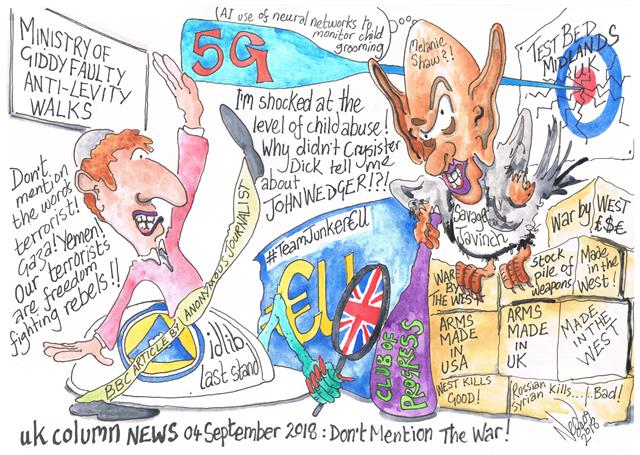 MINISTRY OF
GIDDY FAULTY
ANTI-LEVITY
WALKS
5G
(AI use of neural networks to
monitor child
grooming)
Melanie
Shaw?!
TEST BED
MIDLANDS
UK
I'm shocked at the
level of child abuse!
Why didn't Craysister
Dick tell me
about
JOHN WEDGER!?!
Don't
mention
the words
terrorist!
Gaza! Yemen!
Our terrorists
are freedom
fighting rebels!!
BBC ARTICLE BY ANONYMOUS JOURNALIST
idlib
last stand
#TeamJunkerEU
€U
CLUB OF
PROGRESS
Savage
Javinch
War by WEST
£$€
WAR
BY
THE WEST
stock
pile of
weapons
Made
in the
West!
ARMS
MADE
IN
USA
ARMS
MADE
IN
UK
MADE
IN THE
WEST
WEST KILLS
GOOD!
Russian
Syrian kills....! Bad!
2018
uk column NEWS 04 September 2018: Don't Mention The War!